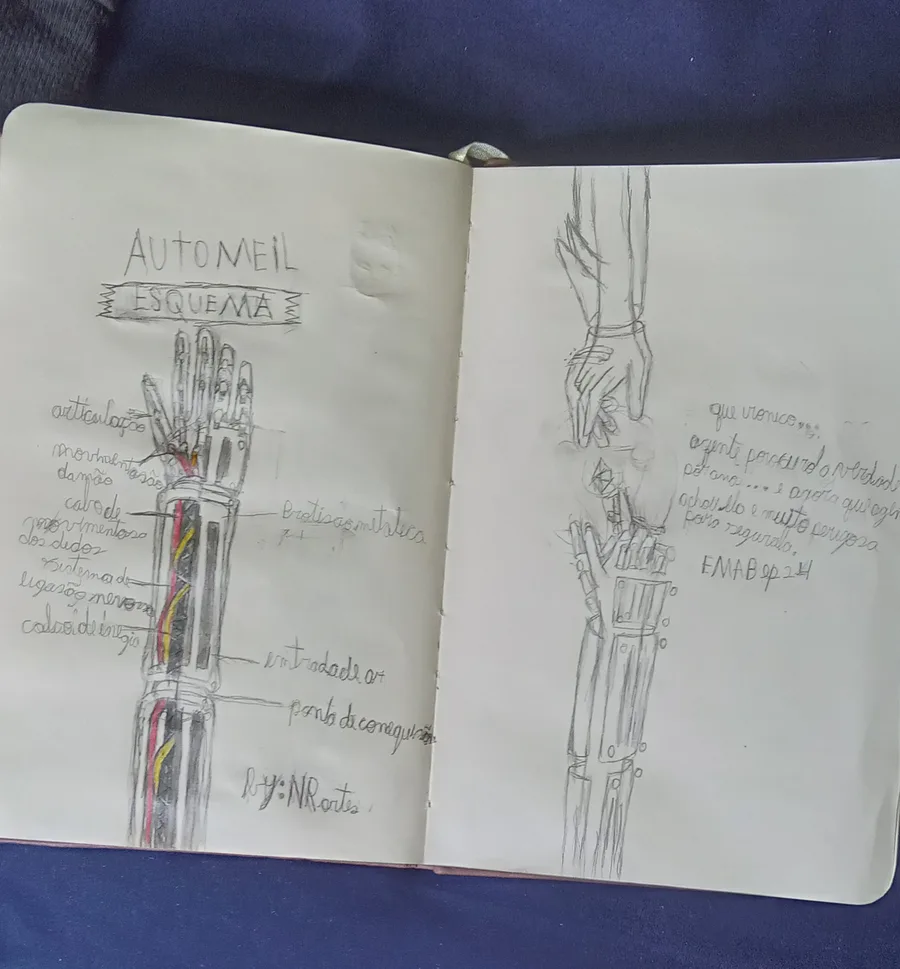 AUTOMEIL
ESQUEMA
articulação
movimentasão
da mão
cabo de
movimentoso
dos dedos
sistema de
ligasão nervoso
de
Protisão metaleca
entrada de ar
ponto de conequisão
by: NR artes
que ironico...
agente percura a verdade
por ano... e agora que agente
achou ela e muito perigosa
para segurala.
FMAB ep 24